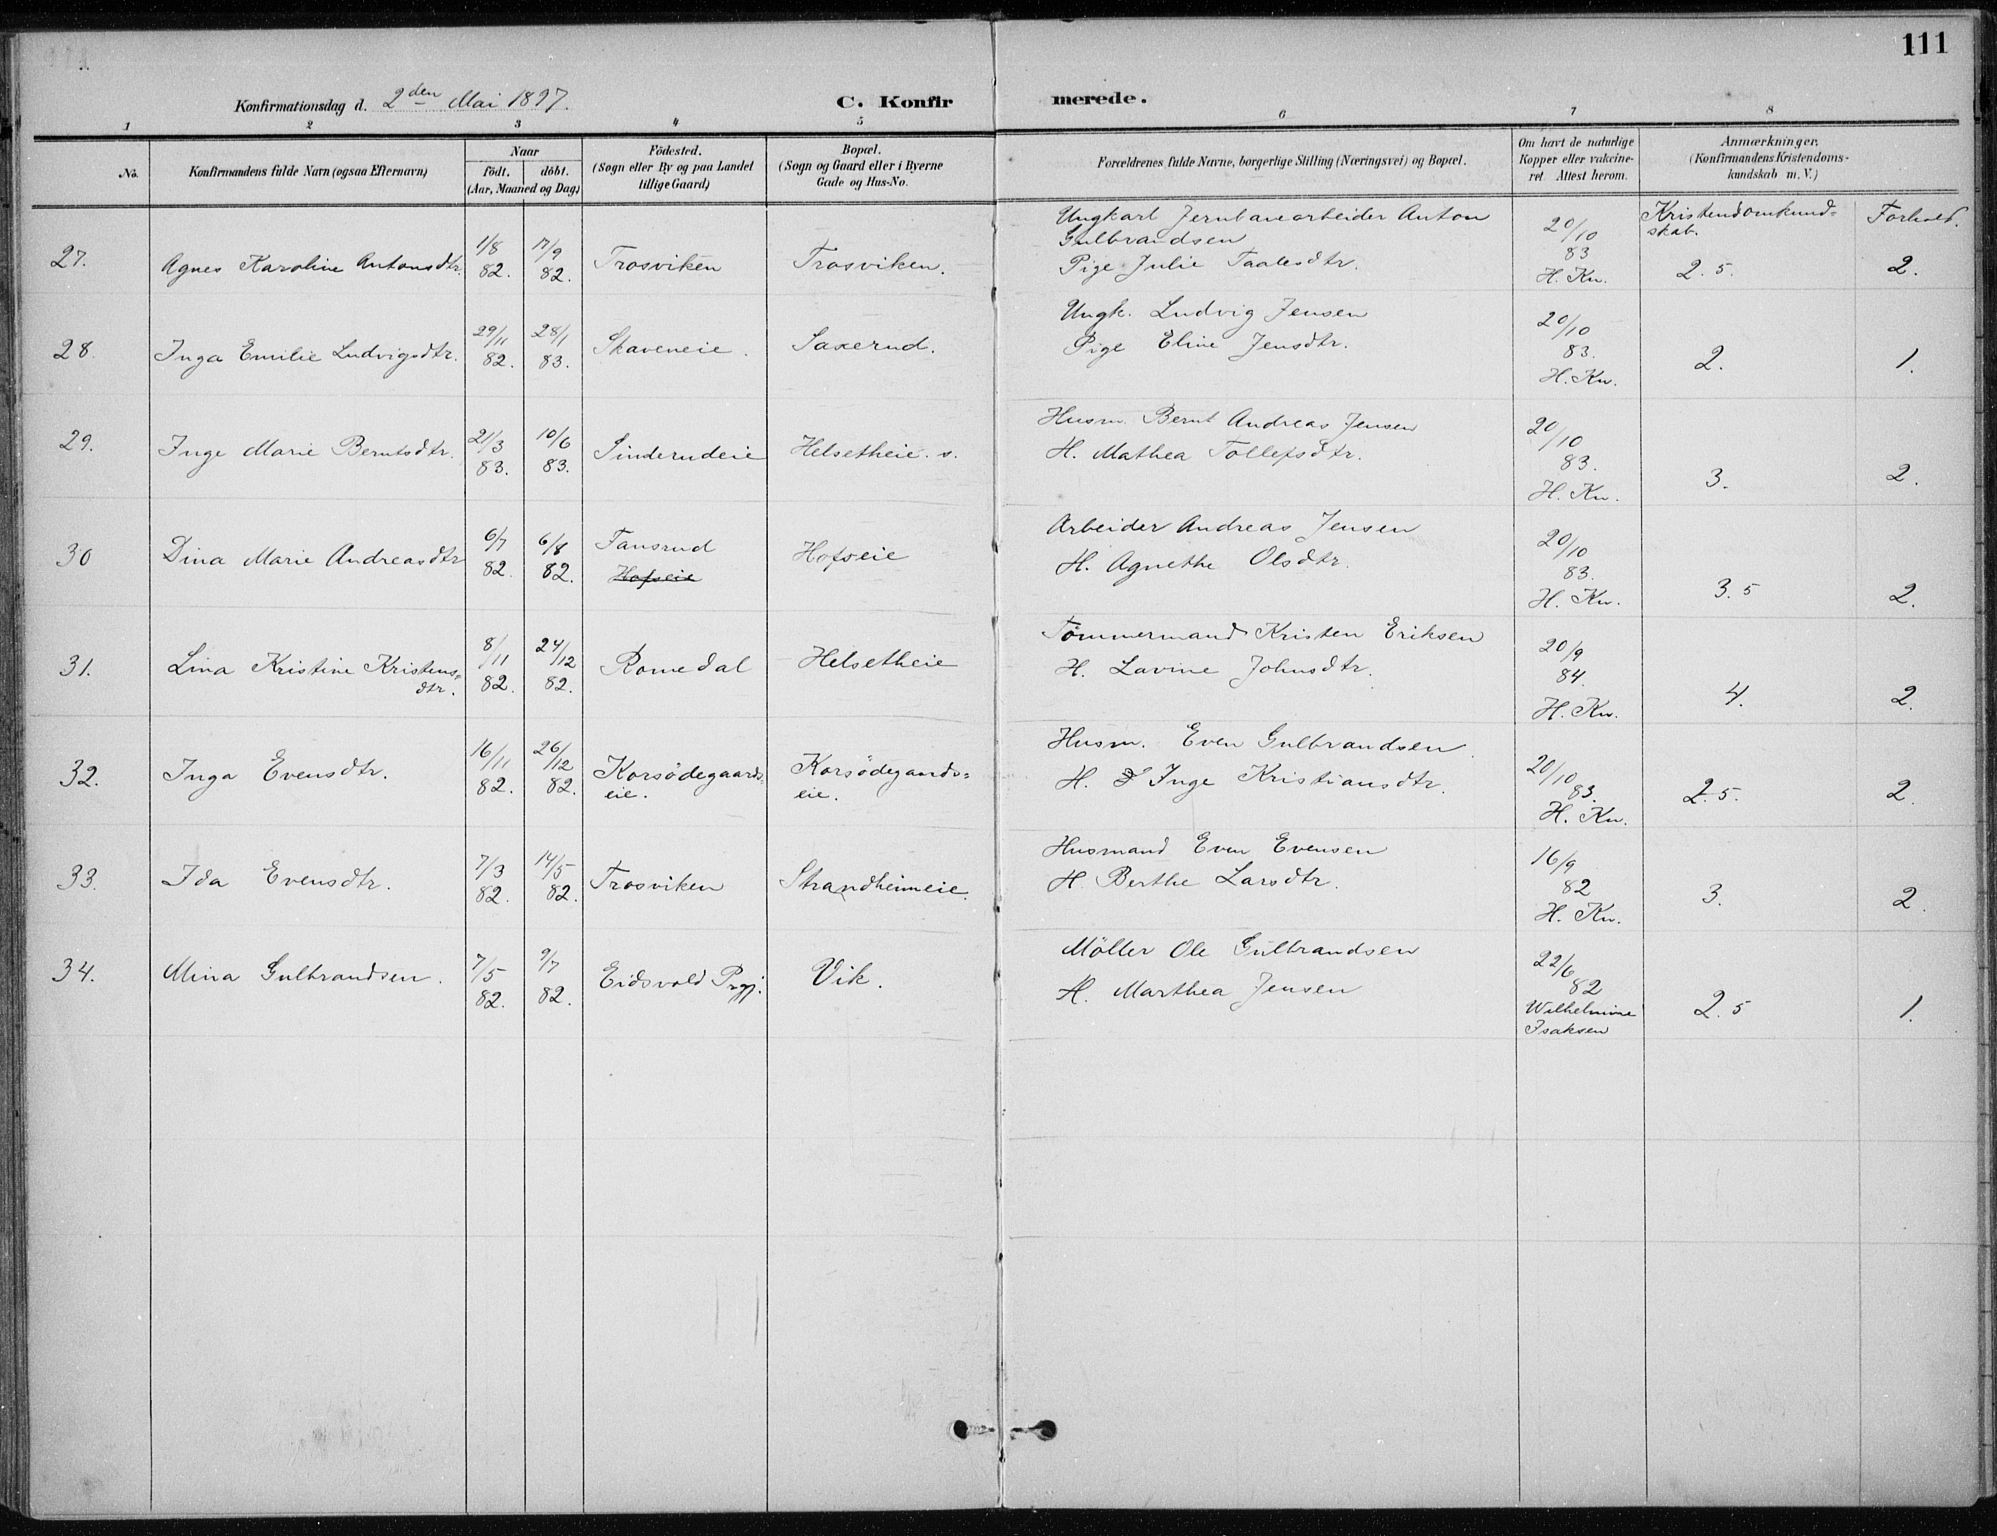 111
Konfirmationsdag d. 2den Mai 1897. C. Konfirmerede.
1 2 3 4 5 6 7 8
No. Konfirmandens fulde Navn (ogsaa Efternavn) Naar födt. döbt. (Aar, Maaned og Dag) Födested. (Sogn eller By og paa Landet tillige Gaard) Bopæl. (Sogn og Gaard eller i Byerne Gade og Hus-No. Forældrenes fulde Navne, borgerlige Stilling (Næringsvei) og Bopæl. Om havt de naturlige Kopper eller vakcineret. Attest herom. Anmærkninger. (Konfirmandens Kristendomskundskab m. V.)
Kristendomkund=skab. Forhold.
27. Agnes Karoline Antonsdtr. 1/8 82. 17/9 82. Trosviken Trosviken. Ungkarl Jernbanearbeider Anton Gulbrandsen
Pige Julie Taalesdtr. 20/10 83 H. Kn. 2.5. 2.
28. Inga Emilie Ludvigsdtr. 29/11 82. 28/1 83. Skaveneie. Saxerud. Ungk. Ludvig Jensen
Pige Eline Jensdtr. 20/10 83. H. Kn. 2. 1.
29. Inge Marie Berntsdtr. 21/3 83. 10/6 83. Sinderudeie Helsetheie. s. Husm. Bernt Andreas Jensen
H. Mathea Tollefsdtr. 20/10 83. H. Kn. 3. 2.
30 Dina Marie Andreasdtr 6/7 82. 6/8 82. Tansrud Hofseie Hofseie Arbeider Andreas Jensen
H. Agnethe Olsdtr. 20/10 83. H. Kn. 3.5 2.
31. Lina Kristine Kristens=dtr. 8/11 82. 24/12 82. Romedal Helsetheie Tømmermand Kristen Eriksen
H. Lavine Johnsdtr. 20/9 84. H. Kn. 4. 2.
32. Inga Evensdtr. 16/11 82. 26/12 82. Korsödegaards eie. Korsödegaards=eie. Husm. Even Gulbrandsen
H. Inge Kristiansdtr. 20/10 83. H. Kn. 2.5. 2.
33. Ida Evensdtr. 7/3 82. 14/5 82. Trosviken Strandheimeie. Husmand Even Evensen
H. Berthe Larsdtr. 16/9 82 H. Kn. 3. 2.
34. Mina Gulbrandsen. 7/5 82. 9/7 82. Eidsvold Prgj. Vik. Möller Ole Gulbrandsen
H. Marthea Jensen 22/6 82 Wilhelmine Isaksen 2.5 1.